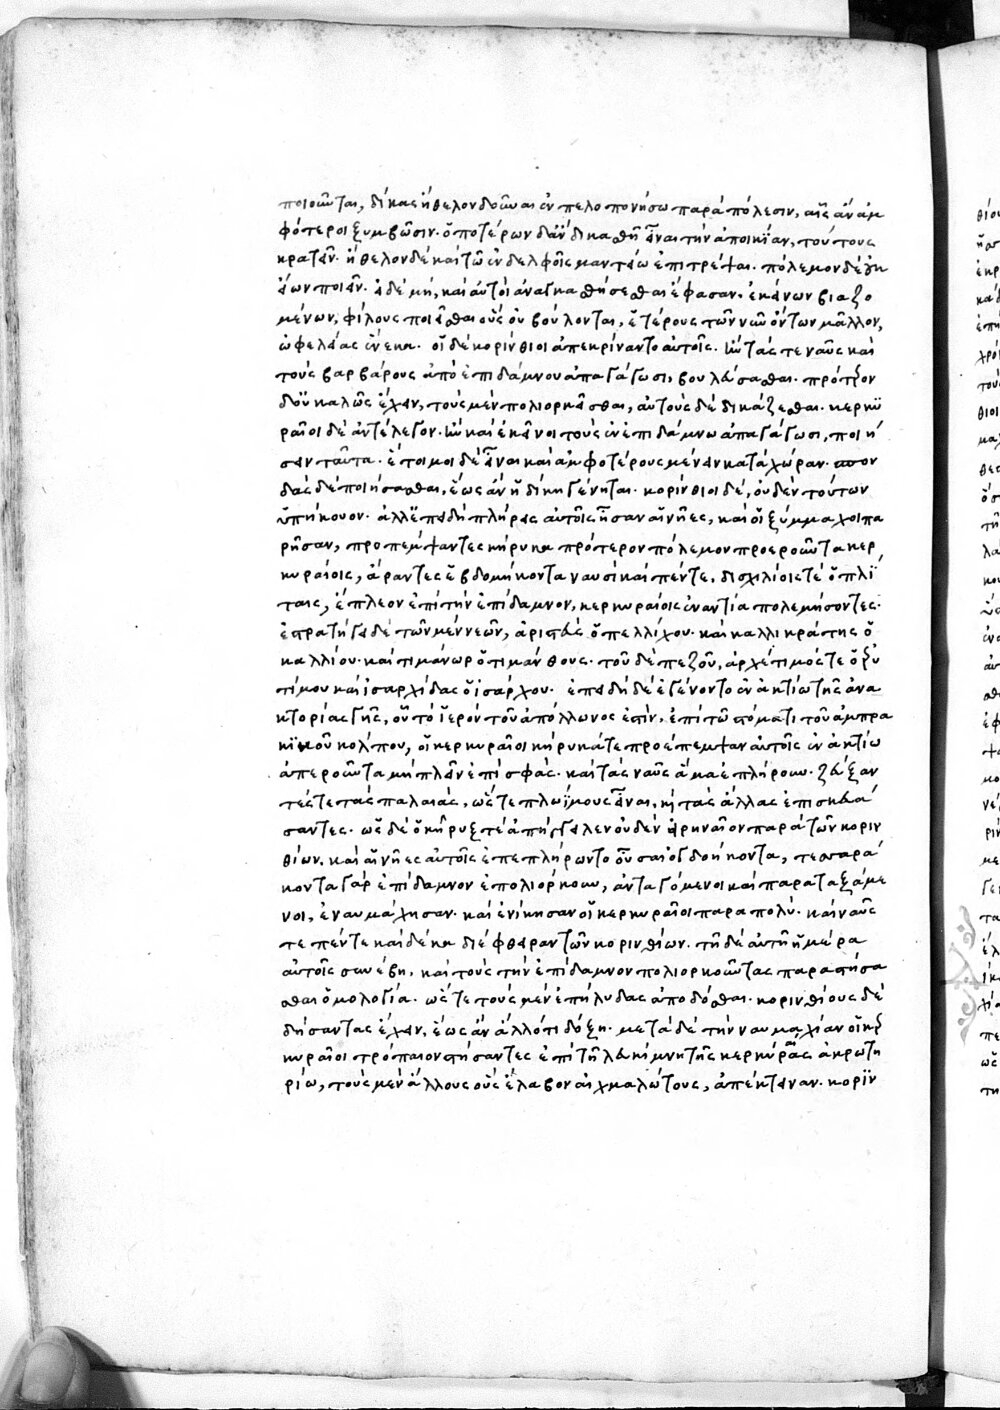 ποιοῦνται, δίκας ἤθελον δοῦναι ἐν πελοπονήσω παρὰ πόλεσιν, αἷς ἂν ἀμ
φότεροι ξυμβῶσιν· ὁποτέρων δ' ἂν δικασθῆ εἶναι τὴν ἀποικίαν, τούτους
κρατεῖν· ἤθελον δὲ καὶ τῶ ἐν δελφοῖς μαντείω ἐπιτρέψαι· πόλεμον δὲ οὐκ
εἴων ποιεῖν· εἰ δὲ μή, καὶ αὐτοὶ ἀναγκασθήσεσθαι ἔφασαν· ἐκείνων βιαζο
μένων, φίλους ποιεῖσθαι οὓς οὐ βούλονται, ἑτέρους τῶν νῦν ὄντων μᾶλλον,
ὠφελείας ἕνεκα· οἱ δὲ κορίνθιοι ἀπεκρίναντο αὐτοῖς· ἢν τάς τε ναῦς καὶ
τοὺς βαρβάρους ἀπὸ ἐπιδάμνου ἀπαγάγωσι, βουλεύσασθαι· πρότερον
δ' οὐ καλῶς ἔχειν, τοὺς μὲν πολιορκεῖσθαι, αὐτοὺς δὲ δικάζεσθαι· κερκυ
ραῖοι δὲ ἀντέλεγον· ἢν καὶ ἐκεῖνοι τοὺς ἐν ἐπιδάμνω ἀπαγάγωσι, ποιή
σειν ταῦτα· ἑτοῖμοι δὲ εἶναι καὶ ἀμφοτέρους μένειν κατὰ χώραν· σπον
δὰς δὲ ποιήσασθαι, ἕως ἂν ἡ δίκη γένηται· κορίνθιοι δὲ, οὐδὲν τούτων
ὑπήκουον· ἀλλ' ἐπειδὴ πλήρεις αὐτοῖς ἦσαν αἱ νῆες, καὶ οἱ ξύμμαχοι πα
ρῆσαν, προπέμψαντες κήρυκα πρότερον πόλεμον προεροῦντα κερ
κυραίοις, ἄραντες ἑβδομήκοντα ναυσὶ καὶ πέντε, δισχιλίοις τὲ ὁπλί
ταις, ἔπλεον ἐπὶ τὴν ἐπίδαμνον, κερκυραίοις ἐναντία πολεμήσοντες·
ἐστρατήγει δὲ τῶν μὲν νεῶν, ἀριστεὺς ὁ πελλίχου· καὶ καλλικράτης ὁ
καλλίου· καὶ τιμάνωρ ὁ τιμάνθους· τοῦ δὲ πεζοῦ, ἀρχέτιμός τε ὁ εὐρυ
τίμου καὶ ἰσαρχίδας ὁ ἰσάρχου· ἐπειδὴ δὲ ἐγένοντο ἐν ἀκτίω τῆς ἀνα
κτορίας γῆς, οὗ τὸ ἱερὸν τοῦ ἀπόλλωνος ἐστὶν, ἐπὶ τῶ στόματι τοῦ ἀμπρα
κικοῦ κόλπου, οἱ κερκυραῖοι κήρυκά τε προέπεμψαν αὐτοῖς ἐν ἀκτίω
ἀπεροῦντα μὴ πλεῖν ἐπὶ σφᾶς· καὶ τὰς ναῦς ἅμα ἐπλήρουν· ζεύξαν
τές τε τὰς παλαιὰς, ὥστε πλωΐμους εἶναι, κ τὰς ἄλλας ἐπισκευά
σαντες· ὡς δὲ ὁ κῆρυξ τὲ ἀπήγγειλεν οὐδὲν εἰρηναῖον παρὰ τῶν κοριν
θίων, καὶ αἱ νῆες αὐτοῖς ἐπεπλήρωντο οὖσαι ὀγδοήκοντα, τεσσαρά
κοντα γὰρ ἐπίδαμνον ἐπολιόρκουν, ἀνταγόμενοι καὶ παραταξάμε
νοι, ἐναυμάχησαν· καὶ ἐνίκησαν οἱ κερκυραῖοι παρὰ πολύ· καὶ ναῦς
τε πέντε καὶ δέκα διέφθειραν τῶν κορινθίων· τῆ δὲ αὐτῆ ἡμέρα
αὐτοῖς συνέβη, καὶ τοὺς τὴν ἐπίδαμνον πολιορκοῦντας παραστήσα
σθαι ὁμολογία· ὥστε τοὺς μὲν ἐπήλυδας ἀποδόσθαι· κορινθίους δὲ
δήσαντας ἔχειν, ἕως ἂν ἄλλό τι δόξη· μετὰ δὲ τὴν ναυμαχίαν οἱ κερ
κυραῖοι τρόπαιον στήσαντες ἐπὶ τῆ λευκίμνη τῆς κερκύρας ἀκρωτη
ρίω, τοὺς μὲν ἄλλους οὓς ἔλαβον αἰχμαλώτους, ἀπέκτειναν· κοριν